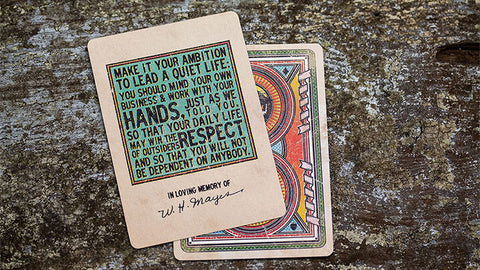 MAKE IT YOUR AMBITION
TO LEAD A QUIET LIFE:
YOU SHOULD MIND YOUR OWN
BUSINESS & WORK WITH YOUR
HANDS, JUST AS WE
TOLD YOU,
SO THAT YOUR DAILY LIFE
MAY WIN THE RESPECT
OF OUTSIDERS
AND SO THAT YOU WILL NOT
BE DEPENDENT ON ANYBODY.
IN LOVING MEMORY OF
W. H. Mayes